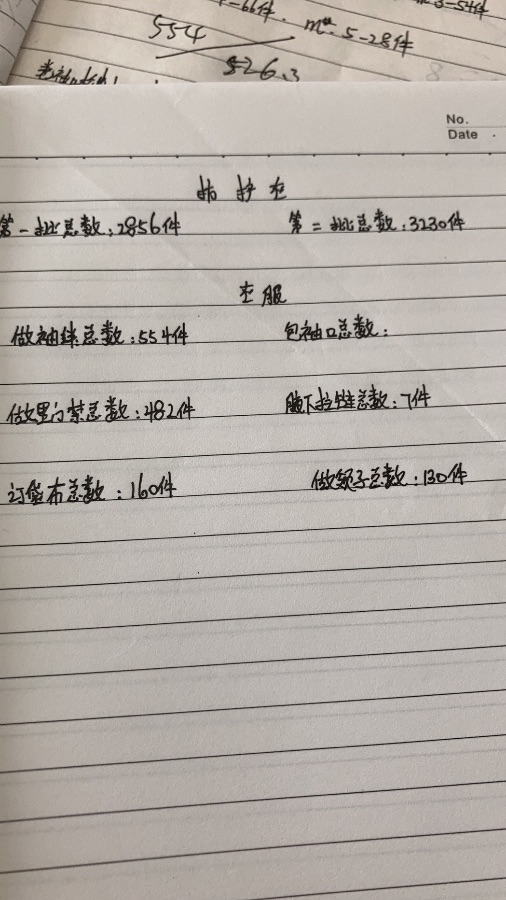 -66件. m码. 5-28件 3-54件
554
526.3
No.
Date
第一批总数:2856件 第二批总数:3230件
衣服
做袖绊总数:554件 包袖口总数:
做里门禁总数:482件 腋下拉链总数:7件
订袋布总数:160件 做领子总数:130件